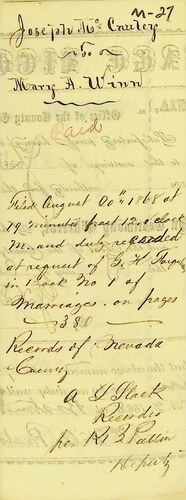 M-27
Joseph McCauley
to
Mary A. Winn
Paid
Filed August 20th 1868 at
19 minutes past 12 o clock
M. and duly recorded
at request of G. H.
in Book No 1 of
Marriages. on pages
380
Records of Nevada
County
A
Recorder
per
Deputy